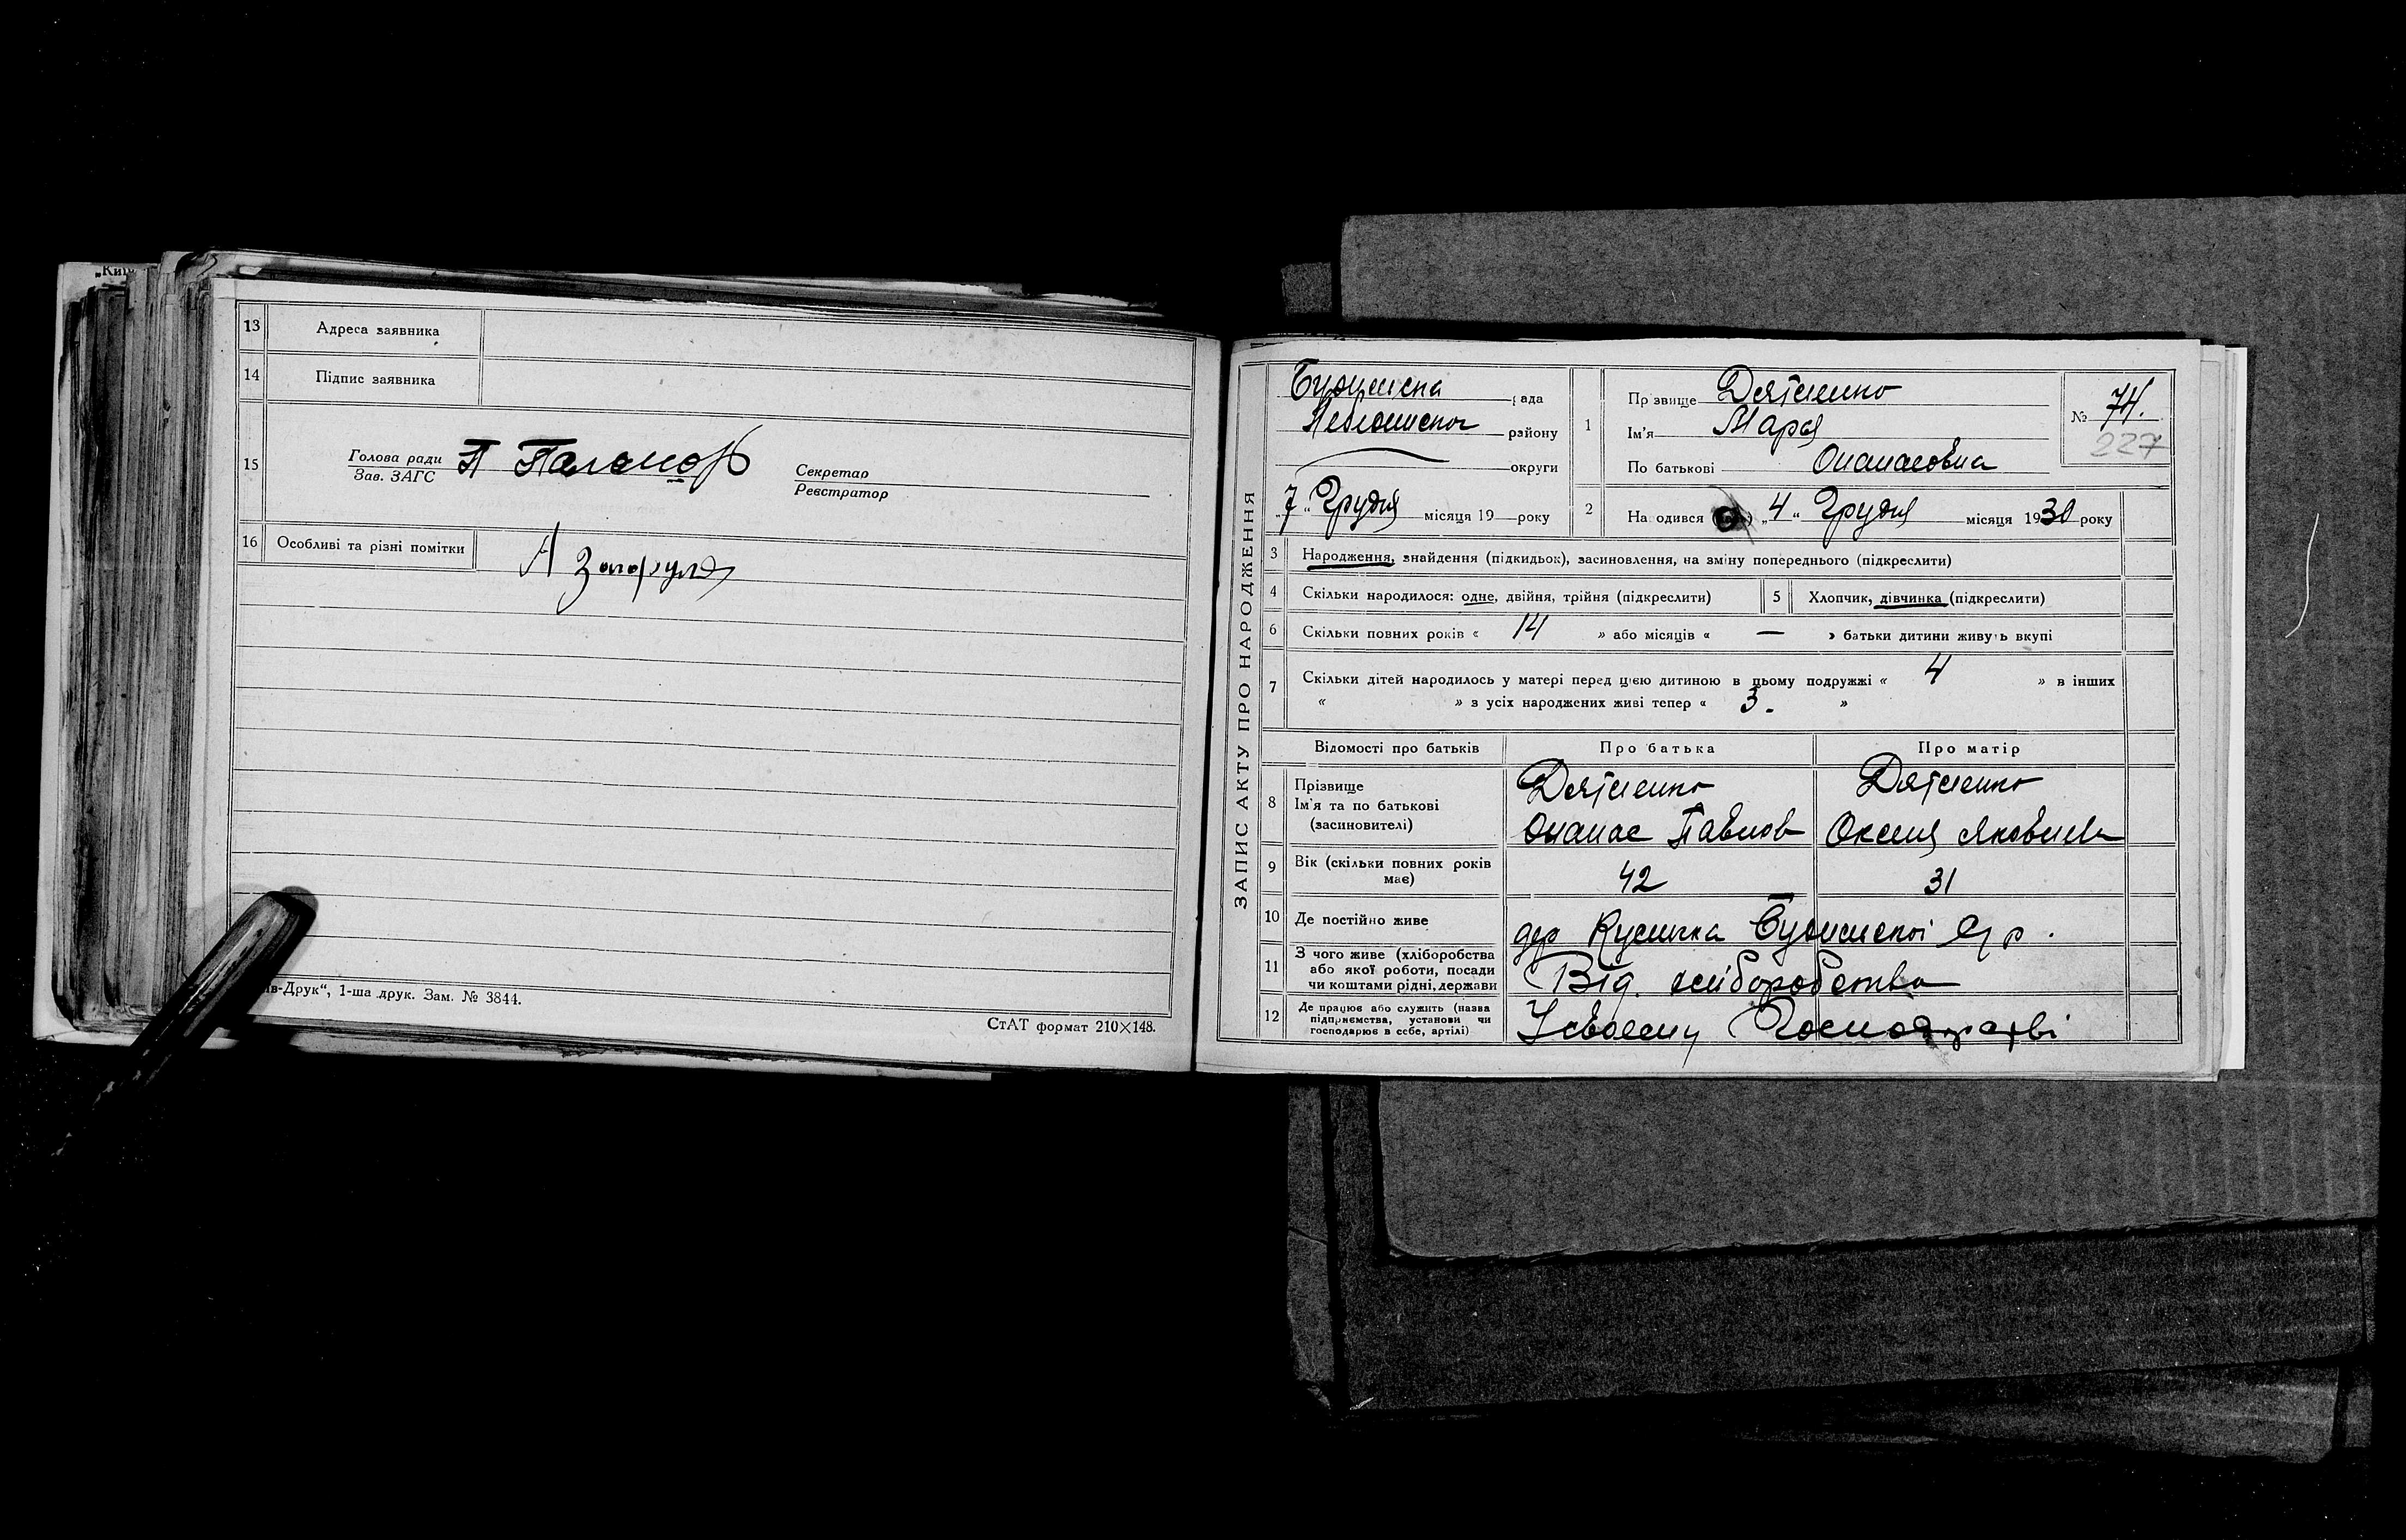 „Київ
13 Адреса заявника
14 Підпис заявника
15 Голова ради
Зав. ЗАГС
Секретар
Реєстратор
16 Особливі та різні помітки
ів-Друк“, 1-ша друк. Зам. № 3844.
СтАТ формат 210×148.
ЗАПИС АКТУ ПРО НАРОДЖЕННЯ
рада
району
округи
„7“ Грудня місяця 19 року
1 Прізвище Дятленко
Ім'я Марія
По батькові Опанасовна
№ 74.
227
2 Народився „4“ Грудня місяця 1930 року
3 Народження, знайдення (підкидьок), засиновлення, на зміну попереднього (підкреслити)
4 Скільки народилося: одне, двійня, трійня (підкреслити)
5 Хлопчик, дівчинка (підкреслити)
6 Скільки повних років « 14 » або місяців « — » батьки дитини живуть вкупі
7 Скільки дітей народилось у матері перед цією дитиною в цьому подружжі « 4 » в інших
« » з усіх народжених живі тепер « 3. »
Відомості про батьків Про батька Про матір
8 Прізвище
Ім'я та по батькові
(засиновителі)
Дятленко
Опанас Павлов
Дятленко
Оксенія Яковлевна
9 Вік (скільки повних років
має)
42 31
10 Де постійно живе
дер
11 З чого живе (хліборобства
або якої роботи, посади
чи коштами рідні, держави
Від. хліборобства
12 Де працює або служить (назва
підприємства, установи чи
господарює в себе, артілі)
У своєму Господарстві